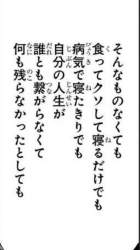 そんなものなくても
食ってクソして寝るだけでも
病気で寝たきりでも
自分の人生が
誰とも繋がらなくて
何も残らなかったとしても